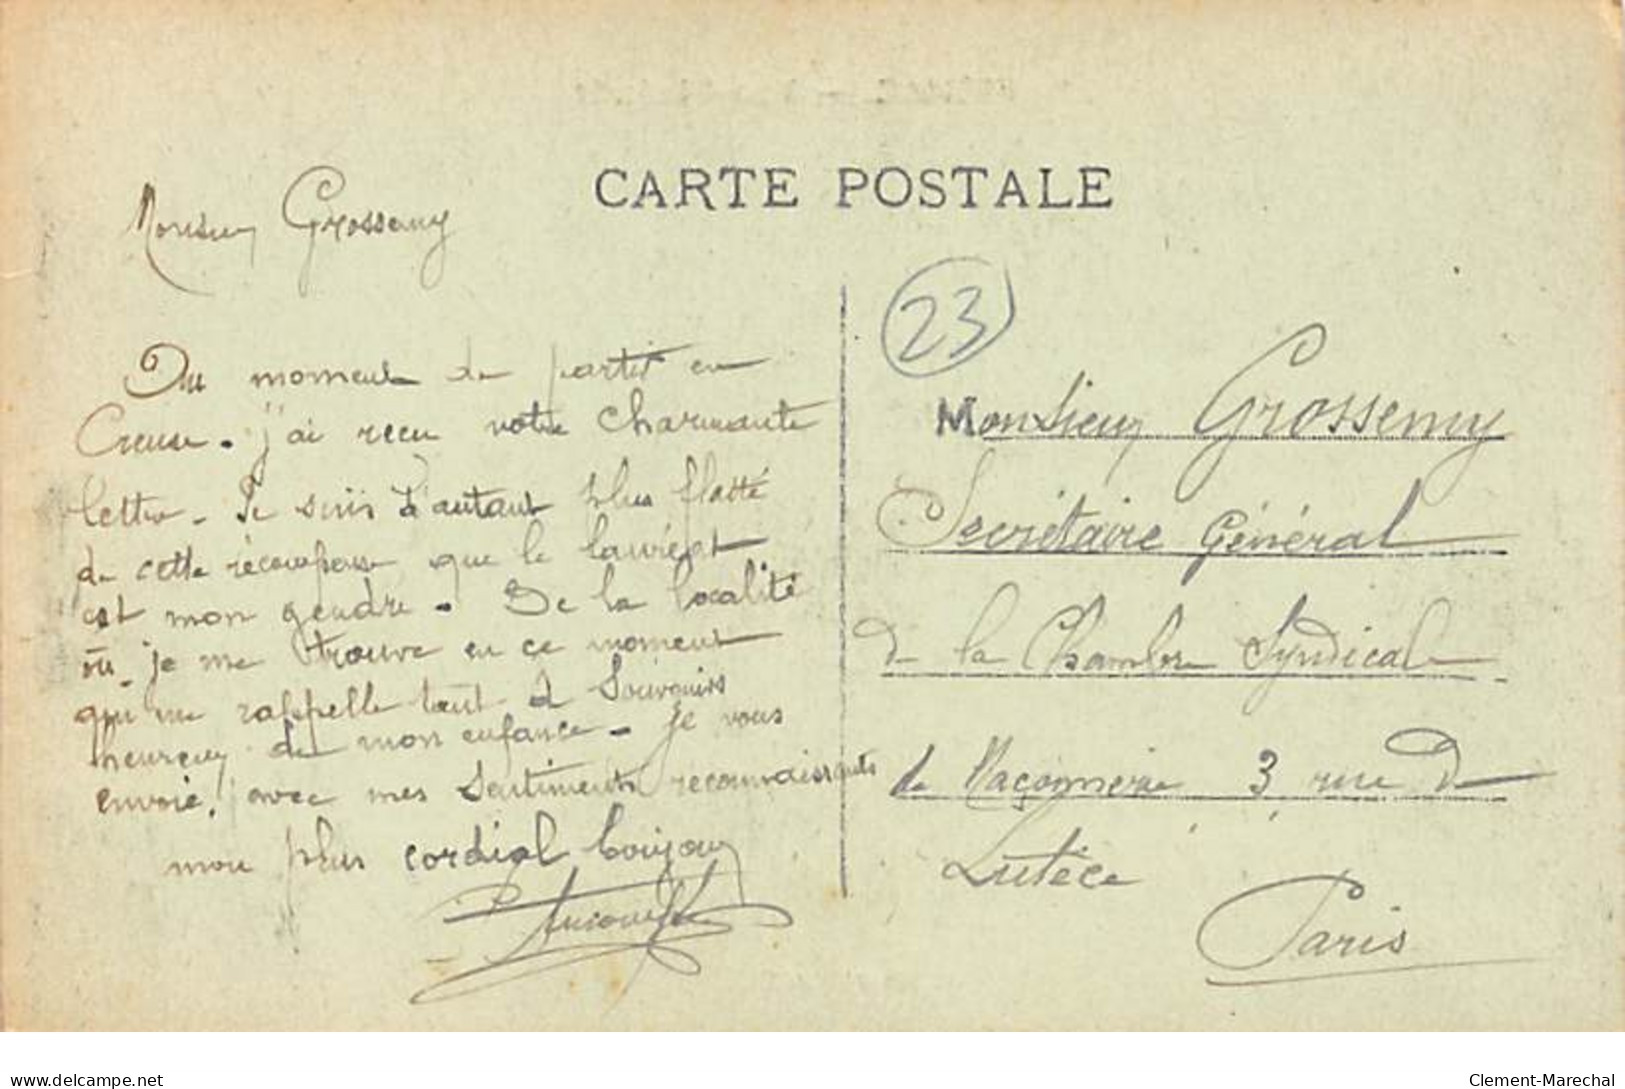 CARTE POSTALE
Monsieur Grossemy
Du moment de partir en
Creuse. j'ai recu votre charmante
lettre. Je suis d'autant plus flatté
de cette récompense que le lauréat
est mon gendre. De la localité
où je me trouve en ce moment
qui me rappelle tant de Souvenirs
heureux de mon enfance. Je vous
envoie, avec mes sentiments reconnaissants
mon plus cordial bonjour
23
Monsieur Grossemy
Secrétaire Général
de la Chambre Syndicale
de Maçonnerie 3 rue de
Lutèce
Paris
www.delcampe.net
Clement-Marechal